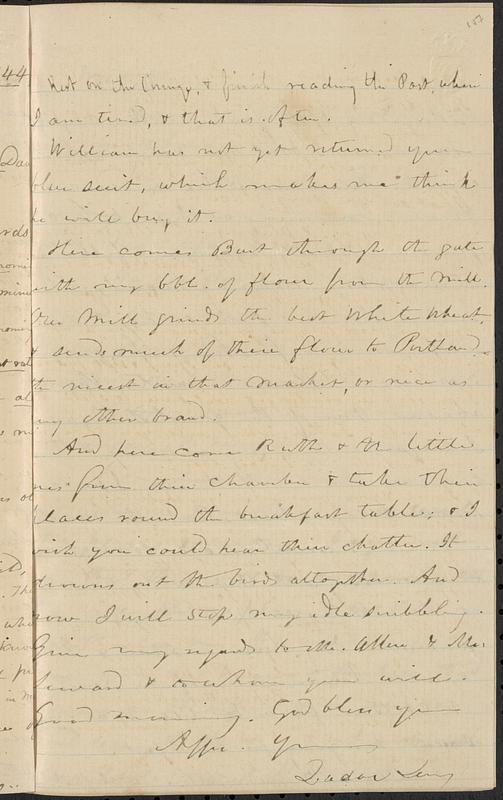 157
Rest on the lounge, & finish reading the Post, when
I am tired, & that is often.
William has not yet returned your
blue suit, which makes me think
he will buy it.
Here comes Burt through the gate
with my bbl. of flour from the Mill.
Our Mill grinds the best White Wheat,
& sends much of their flour to Portland
the nicest in that market, or nice as
any other brand.
And here come Ruth & the little
ones from their chamber & take their
places round the breakfast table; & I
wish you could hear their chatter. It
drowns out the birds altogether. And
now I will stop my idle scribbling.
Give my regards to Mr. Allen & Mr.
Seward & to whom you will.
Good morning. God bless you
Affec. Yours